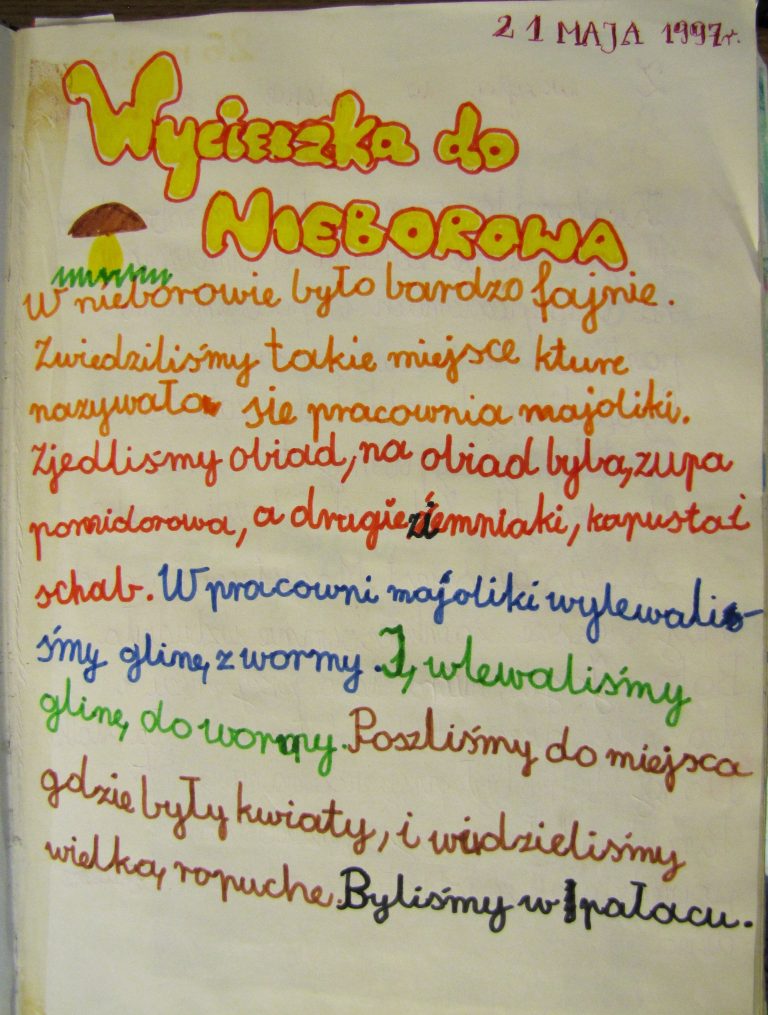 21 MAJA 1997r.
Wycieczka do
NIEBOROWA
W nieborowie było bardzo fajnie.
Zwiedziliśmy takie miejsce kture
nazywało się pracownia majoliki.
Zjedliśmy obiad, na obiad była, zupa
pomidorowa, a drugie ziemniaki, kapusta i
schab. W pracowni majoliki wylewali-
śmy glinę z wormy. I, wlewaliśmy
glinę do wormy. Poszliśmy do miejsca
gdzie były kwiaty, i widzieliśmy
wielką ropuche. Byliśmy w pałacu.